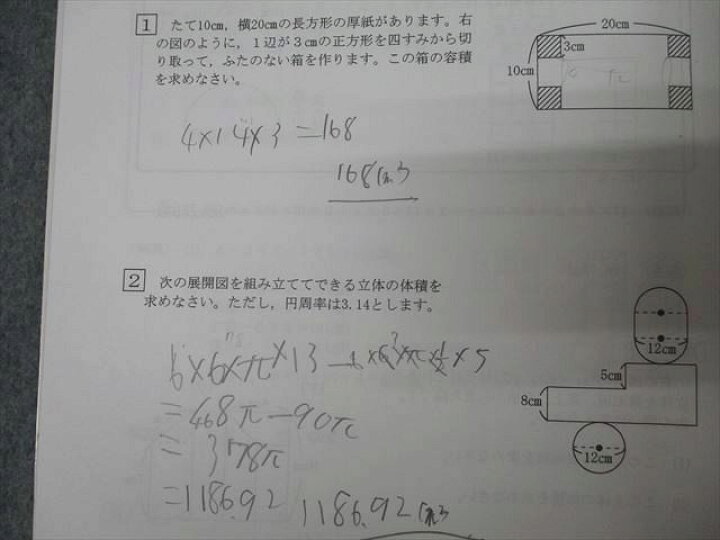 1 たて10cm, 横20cmの長方形の厚紙があります。右
の図のように, 1辺が3cmの正方形を四すみから切
り取って, ふたのない箱を作ります。この箱の容積
を求めなさい。
20cm
3cm
10cm
4×14×3=168
168cm³
2 次の展開図を組み立ててできる立体の体積を
求めなさい。ただし, 円周率は3.14とします。
12cm
5cm
8cm
12cm
6×6×π×13－6×6×π×½×5
=468π－90π
=378π
=1186.92 1186.92cm³